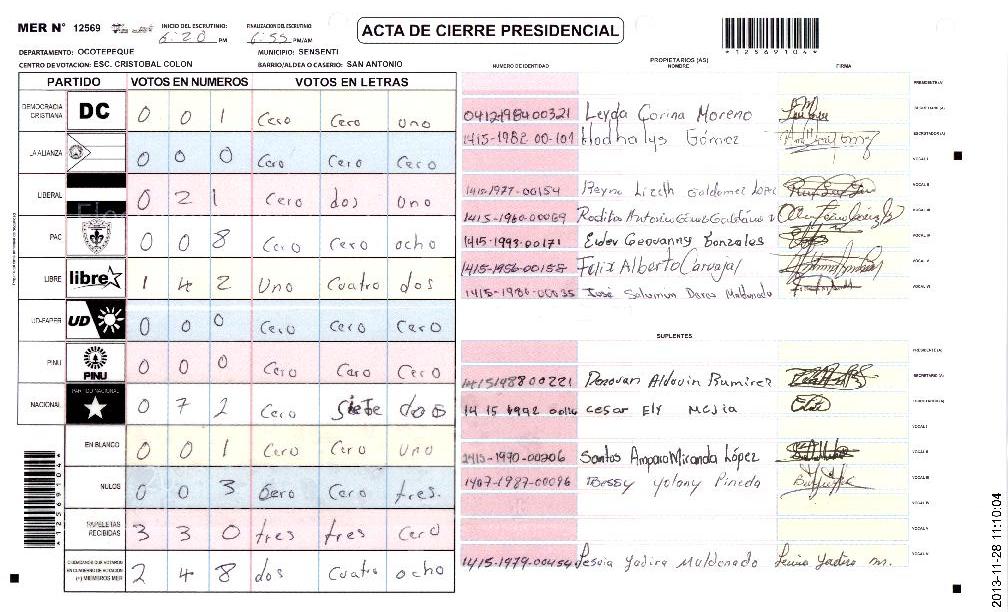 MER N° 12569
INICIO DEL ESCRUTINIO
6:20 PM
FINALIZACION DEL ESCRUTINIO
6:55 PM/AM
ACTA DE CIERRE PRESIDENCIAL
*12569104*
DEPARTAMENTO: OCOTEPEQUE
MUNICIPIO: SENSENTI
CENTRO DE VOTACION: ESC. CRISTOBAL COLON
BARRIO/ALDEA O CASERIO: SAN ANTONIO
PARTIDO VOTOS EN NUMEROS VOTOS EN LETRAS
DEMOCRACIA CRISTIANA DC 0 0 1 Cero Cero uno
LA ALIANZA 0 0 0 Cero Cero Cero
LIBERAL 0 2 1 Cero dos uno
PAC 0 0 8 Cero Cero ocho
LIBRE libre 1 4 2 Uno Cuatro dos
UD-FAPER UD 0 0 0 Cero Cero Cero
PINU PINU 0 0 0 Cero Cero Cero
NACIONAL PARTIDO NACIONAL 0 7 2 Cero siete dos
EN BLANCO 0 0 1 Cero Cero uno
NULOS 0 0 3 Cero Cero tres.
PAPELETAS RECIBIDAS 3 3 0 tres tres Cero
CIUDADANOS QUE VOTARON EN CUADERNO DE VOTACION (+) MIEMBROS MER 2 4 8 dos Cuatro ocho
*12569104*
PROPIETARIOS (AS)
NUMERO DE IDENTIDAD NOMBRE FIRMA
PRESIDENTE(A)
0412198400321 Leyda Corina Moreno SECRETARIO(A)
1415-1982-00-101 Hodhalys Gómez ESCRUTADOR(A)
VOCAL I
1415-1977-00154 Reyna Lizeth Galdamez Lopez VOCAL II
1415-1960-00069 VOCAL III
1415-1993-00171 Eider Geovanny Gonzales VOCAL IV
1415-1956-00158 Felix Alberto Carvajal VOCAL V
1415-1986-00035 José Salomon Maldonado VOCAL VI
SUPLENTES
PRESIDENTE(A)
1415198800221 Donovan Aldovin Ramirez SECRETARIO(A)
14 15 1992 Cesar Ely Mejia ESCRUTADOR(A)
VOCAL I
1415-1990-00206 Santos Amparo Miranda López VOCAL II
1407-1987-00096 Bessy Yolany Pineda VOCAL III
VOCAL IV
VOCAL V
1415-1979-00454 Lesvia Yadira Maldonado VOCAL VI
2013-11-28 11:10:04